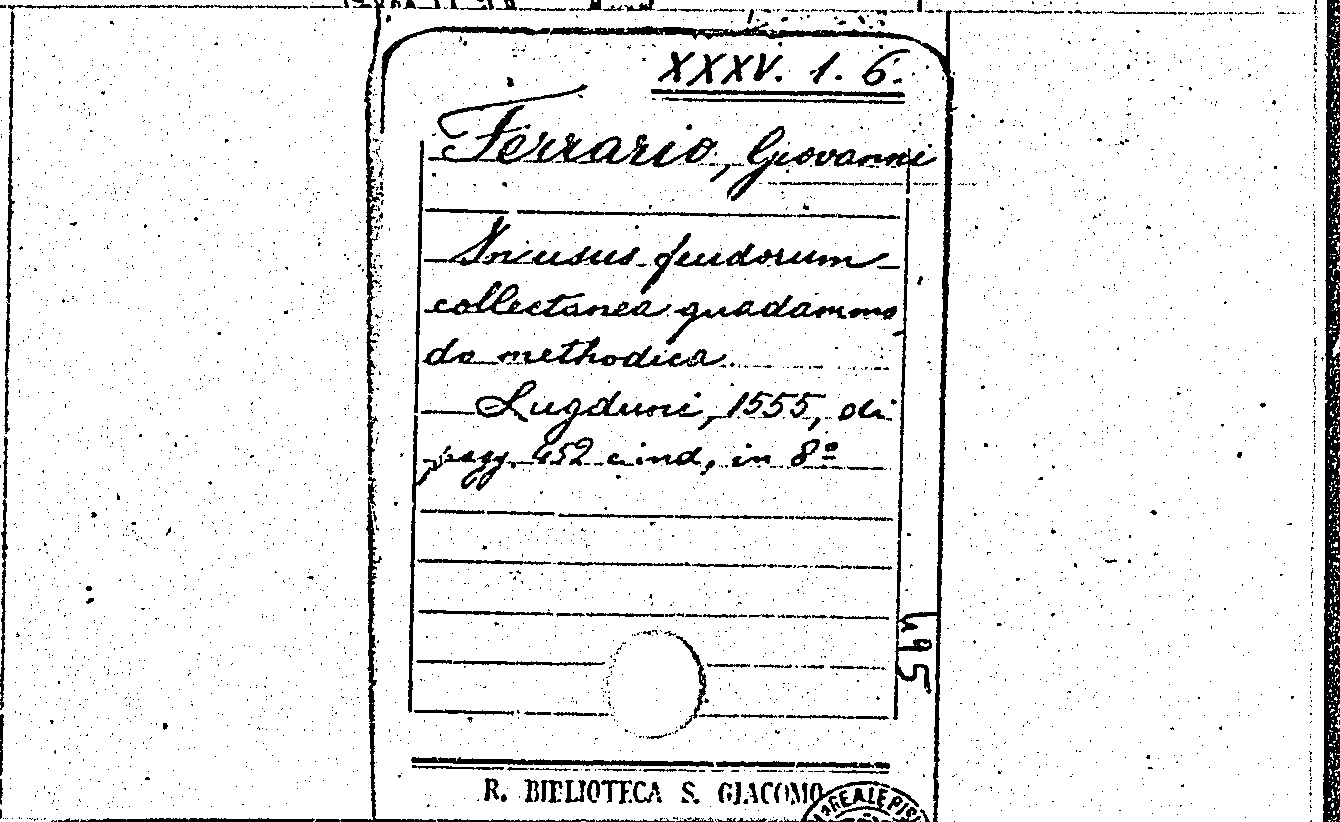 XXXV. 1. 6.
Ferrario, Giovanni
In usus feudorum
collectanea quadammo
do methodica.
Lugduni, 1555, di
pagg. 452 e ind, in 8º
495
R. BIBLIOTECA S. GIACOMO
REALE